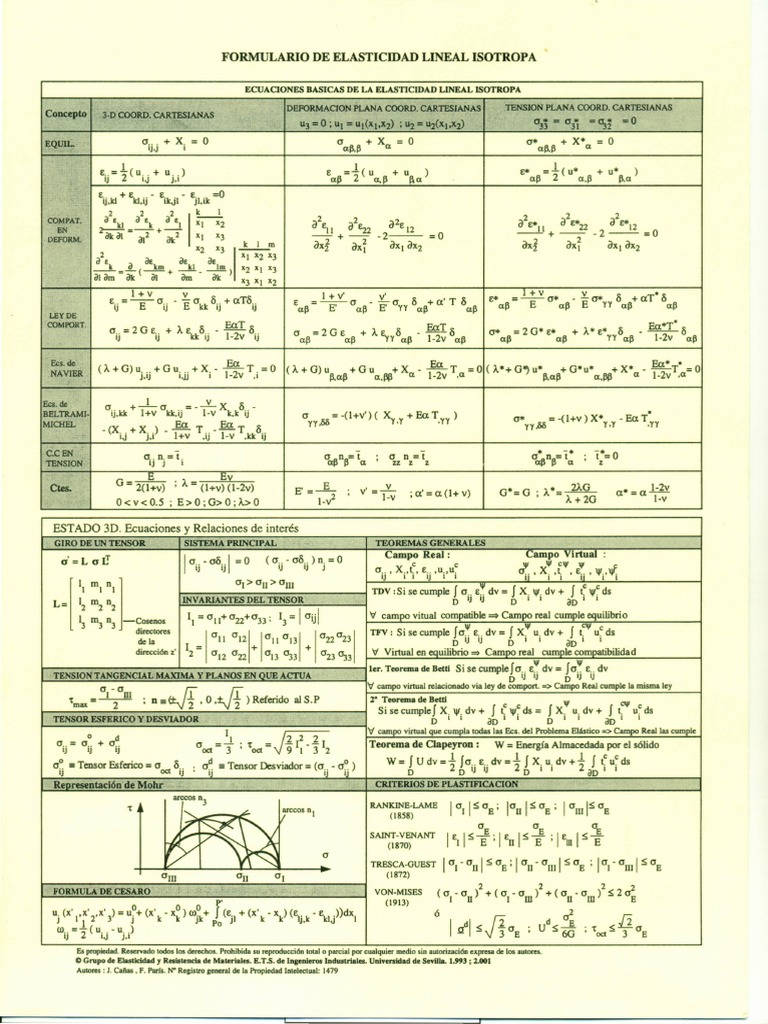 FORMULARIO DE ELASTICIDAD LINEAL ISOTROPA
ECUACIONES BASICAS DE LA ELASTICIDAD LINEAL ISOTROPA
Concepto
3-D COORD. CARTESIANAS
DEFORMACION PLANA COORD. CARTESIANAS
u₃ = 0 ; u₁ = u₁(x₁,x₂) ; u₂ = u₂(x₁,x₂)
TENSION PLANA COORD. CARTESIANAS
σ*₃₃ = σ*₃₁ = σ*₃₂ = 0
EQUIL.
σ_ij,j + X_i = 0
σ_αβ,β + X_α = 0
σ*_αβ,β + X*_α = 0
COMPAT. EN DEFORM.
ε_ij = 1/2 ( u_i,j + u_j,i )
ε_αβ = 1/2 ( u_α,β + u_β,α )
ε*_αβ = 1/2 ( u*_α,β + u*_β,α )
ε_ij,kl + ε_kl,ij - ε_ik,jl - ε_jl,ik = 0
2 ∂²ε_kl/∂k ∂l = ∂²ε_k/∂l² + ∂²ε_l/∂k²
k l
x₁ x₂
x₁ x₃
x₂ x₃
∂²ε_k/∂l ∂m = ∂/∂k ( ∂ε_km/∂l + ∂ε_kl/∂m - ∂ε_lm/∂k )
k l m
x₁ x₂ x₃
x₂ x₁ x₃
x₃ x₁ x₂
∂²ε₁₁/∂x₂² + ∂²ε₂₂/∂x₁² - 2 ∂²ε₁₂/∂x₁ ∂x₂ = 0
∂²ε*₁₁/∂x₂² + ∂²ε*₂₂/∂x₁² - 2 ∂²ε*₁₂/∂x₁ ∂x₂ = 0
LEY DE COMPORT.
ε_ij = (1 + ν)/E σ_ij - ν/E σ_kk δ_ij + αTδ_ij
ε_αβ = (1 + ν')/E' σ_αβ - ν'/E' σ_γγ δ_αβ + α' T δ_αβ
ε*_αβ = (1 + ν)/E σ*_αβ - ν/E σ*_γγ δ_αβ + αT* δ_αβ
σ_ij = 2 G ε_ij + λ ε_kk δ_ij - EαT/(1-2ν) δ_ij
σ_αβ = 2 G ε_αβ + λ ε_γγ δ_αβ - EαT/(1-2ν) δ_αβ
σ*_αβ = 2 G* ε*_αβ + λ* ε*_γγ δ_αβ - Eα*T*/(1-2ν) δ_αβ
Ecs. de NAVIER
( λ + G) u_j,ij + G u_i,jj + X_i - Eα/(1-2ν) T,_i = 0
(λ + G) u_β,αβ + G u_α,ββ + X_α - Eα/(1-2ν) T,_α = 0
( λ* + G*) u*_β,αβ + G*u*_α,ββ + X*_α - Eα*/(1-2ν) T*,_α = 0
Ecs. de BELTRAMI-MICHEL
σ_ij,kk + 1/(1+ν) σ_kk,ij = - ν/(1-ν) X_k,k δ_ij -
- (X_i,j + X_j,i) - Eα/(1+ν) T,_ij - Eα/(1-ν) T,_kk δ_ij
σ_γγ,δδ = -(1+ν') ( X_γ,γ + Eα T,_γγ )
σ*_γγ,δδ = -(1+ν ) X*_γ,γ - Eα T*,_γγ
C.C EN TENSION
σ_ij n_j = t̄_i
σ_αβ n_β = t̄_α ; σ_zz n_z = t̄_z
σ*_αβ n_β = t̄*_α ; t̄*_z = 0
Ctes.
G = E/2(1+ν) ; λ = Eν/(1+ν) (1-2ν)
0 < ν < 0.5 ; E > 0 ; G> 0 ; λ> 0
E' = E/(1-ν²) ; ν' = ν/(1-ν) ; α' = α (1+ ν)
G* = G ; λ* = 2λG/(λ + 2G) α* = α (1-2ν)/(1-ν)
ESTADO 3D. Ecuaciones y Relaciones de interés
GIRO DE UN TENSOR
σ' = L σ Lᵀ
L = [ l₁ m₁ n₁
l₂ m₂ n₂
l₃ m₃ n₃ ]
Cosenos
directores
de la
dirección z'
SISTEMA PRINCIPAL
| σ_ij - σδ_ij | = 0 ( σ_ij - σδ_ij ) n_j = 0
σ_I > σ_II > σ_III
INVARIANTES DEL TENSOR
I₁ = σ₁₁ + σ₂₂ + σ₃₃ ; I₃ = | σ_ij |
I₂ = | σ₁₁ σ₁₂ ; σ₁₂ σ₂₂ | + | σ₁₁ σ₁₃ ; σ₁₃ σ₃₃ | + | σ₂₂ σ₂₃ ; σ₂₃ σ₃₃ |
TENSION TANGENCIAL MAXIMA Y PLANOS EN QUE ACTUA
τ_max = (σ_I - σ_III)/2 ; n ≡ (±√(1/2) , 0 , ±√(1/2) ) Referido al S.P
TENSOR ESFERICO Y DESVIADOR
σ_ij = σ°_ij + σᵈ_ij σ_oct = I₁/3 ; τ_oct = √(2/9 I₁² - 2/3 I₂)
σ°_ij ≡ Tensor Esferico = σ_oct δ_ij ; σᵈ_ij ≡ Tensor Desviador = (σ_ij - σ°_ij )
Representación de Mohr
τ
arccos n₃
arccos n₁
σ_III
σ_II
σ_I
σ
FORMULA DE CESARO
u_j (x'₁,x'₂,x'₃) = u°_j + (x'_k - x°_k) ω°_jk + ∫_Po^P' (ε_jl + (x'_k - x_k) (ε_lj,k - ε_kl,j))dx_l
ω_ij = 1/2 ( u_i,j - u_j,i )
TEOREMAS GENERALES
Campo Real :
Campo Virtual :
σ_ij , X_i , t_i^c , ε_ij , u_i , u_i^c
σ_ij^Ψ , X_i^Ψ , t_i^cΨ , ε_ij^Ψ , ψ_i , ψ_i^c
TDV : Si se cumple ∫_D σ_ij ε_ij^Ψ dv = ∫_D X_i ψ_i dv + ∫_∂D t_i^c ψ_i^c ds
∀ campo vitual compatible => Campo real cumple equilibrio
TFV : Si se cumple ∫_D σ_ij^Ψ ε_ij dv = ∫_D X_i^Ψ u_i dv + ∫_∂D t_i^cΨ u_i^c ds
∀ Virtual en equilibrio => Campo real cumple compatibilidad
1er. Teorema de Betti Si se cumple ∫_D σ_ij^Ψ ε_ij dv = ∫_D σ_ij ε_ij^Ψ dv
∀ campo virtual relacionado via ley de comport. => Campo Real cumple la misma ley
2º Teorema de Betti
Si se cumple ∫_D X_i ψ_i dv + ∫_∂D t_i^c ψ_i^c ds = ∫_D X_i^Ψ u_i dv + ∫_∂D t_i^cΨ u_i^c ds
∀ campo virtual que cumpla todas las Ecs. del Problema Elástico => Campo Real las cumple
Teorema de Clapeyron : W = Energía Almacedada por el sólido
W = ∫_D U dv = 1/2 ∫_D σ_ij ε_ij dv = 1/2 ∫_D X_i u_i dv + 1/2 ∫_∂D t_i^c u_i^c ds
CRITERIOS DE PLASTIFICACION
RANKINE-LAME (1858) | σ_I | ≤ σ_E ; | σ_II | ≤ σ_E ; | σ_III | ≤ σ_E
SAINT-VENANT (1870) | ε_I | ≤ σ_E/E ; | ε_II | ≤ σ_E/E ; | ε_III | ≤ σ_E/E
TRESCA-GUEST (1872) | σ_I - σ_II | ≤ σ_E ; | σ_II - σ_III | ≤ σ_E ; | σ_I - σ_III | ≤ σ_E
VON-MISES (1913) ( σ_I - σ_II )² + ( σ_I - σ_III )² + ( σ_II - σ_III )² ≤ 2 σ_E²
ó
| σᵈ | ≤ √(2/3) σ_E ; Uᵈ ≤ σ_E²/6G ; τ_oct ≤ √2/3 σ_E
Es propiedad. Reservado todos los derechos. Prohibida su reproducción total o parcial por cualquier medio sin autorización expresa de los autores.
© Grupo de Elasticidad y Resistencia de Materiales. E.T.S. de Ingenieros Industriales. Universidad de Sevilla. 1.993 ; 2.001
Autores : J. Cañas , F. París. Nº Registro general de la Propiedad Intelectual: 1479